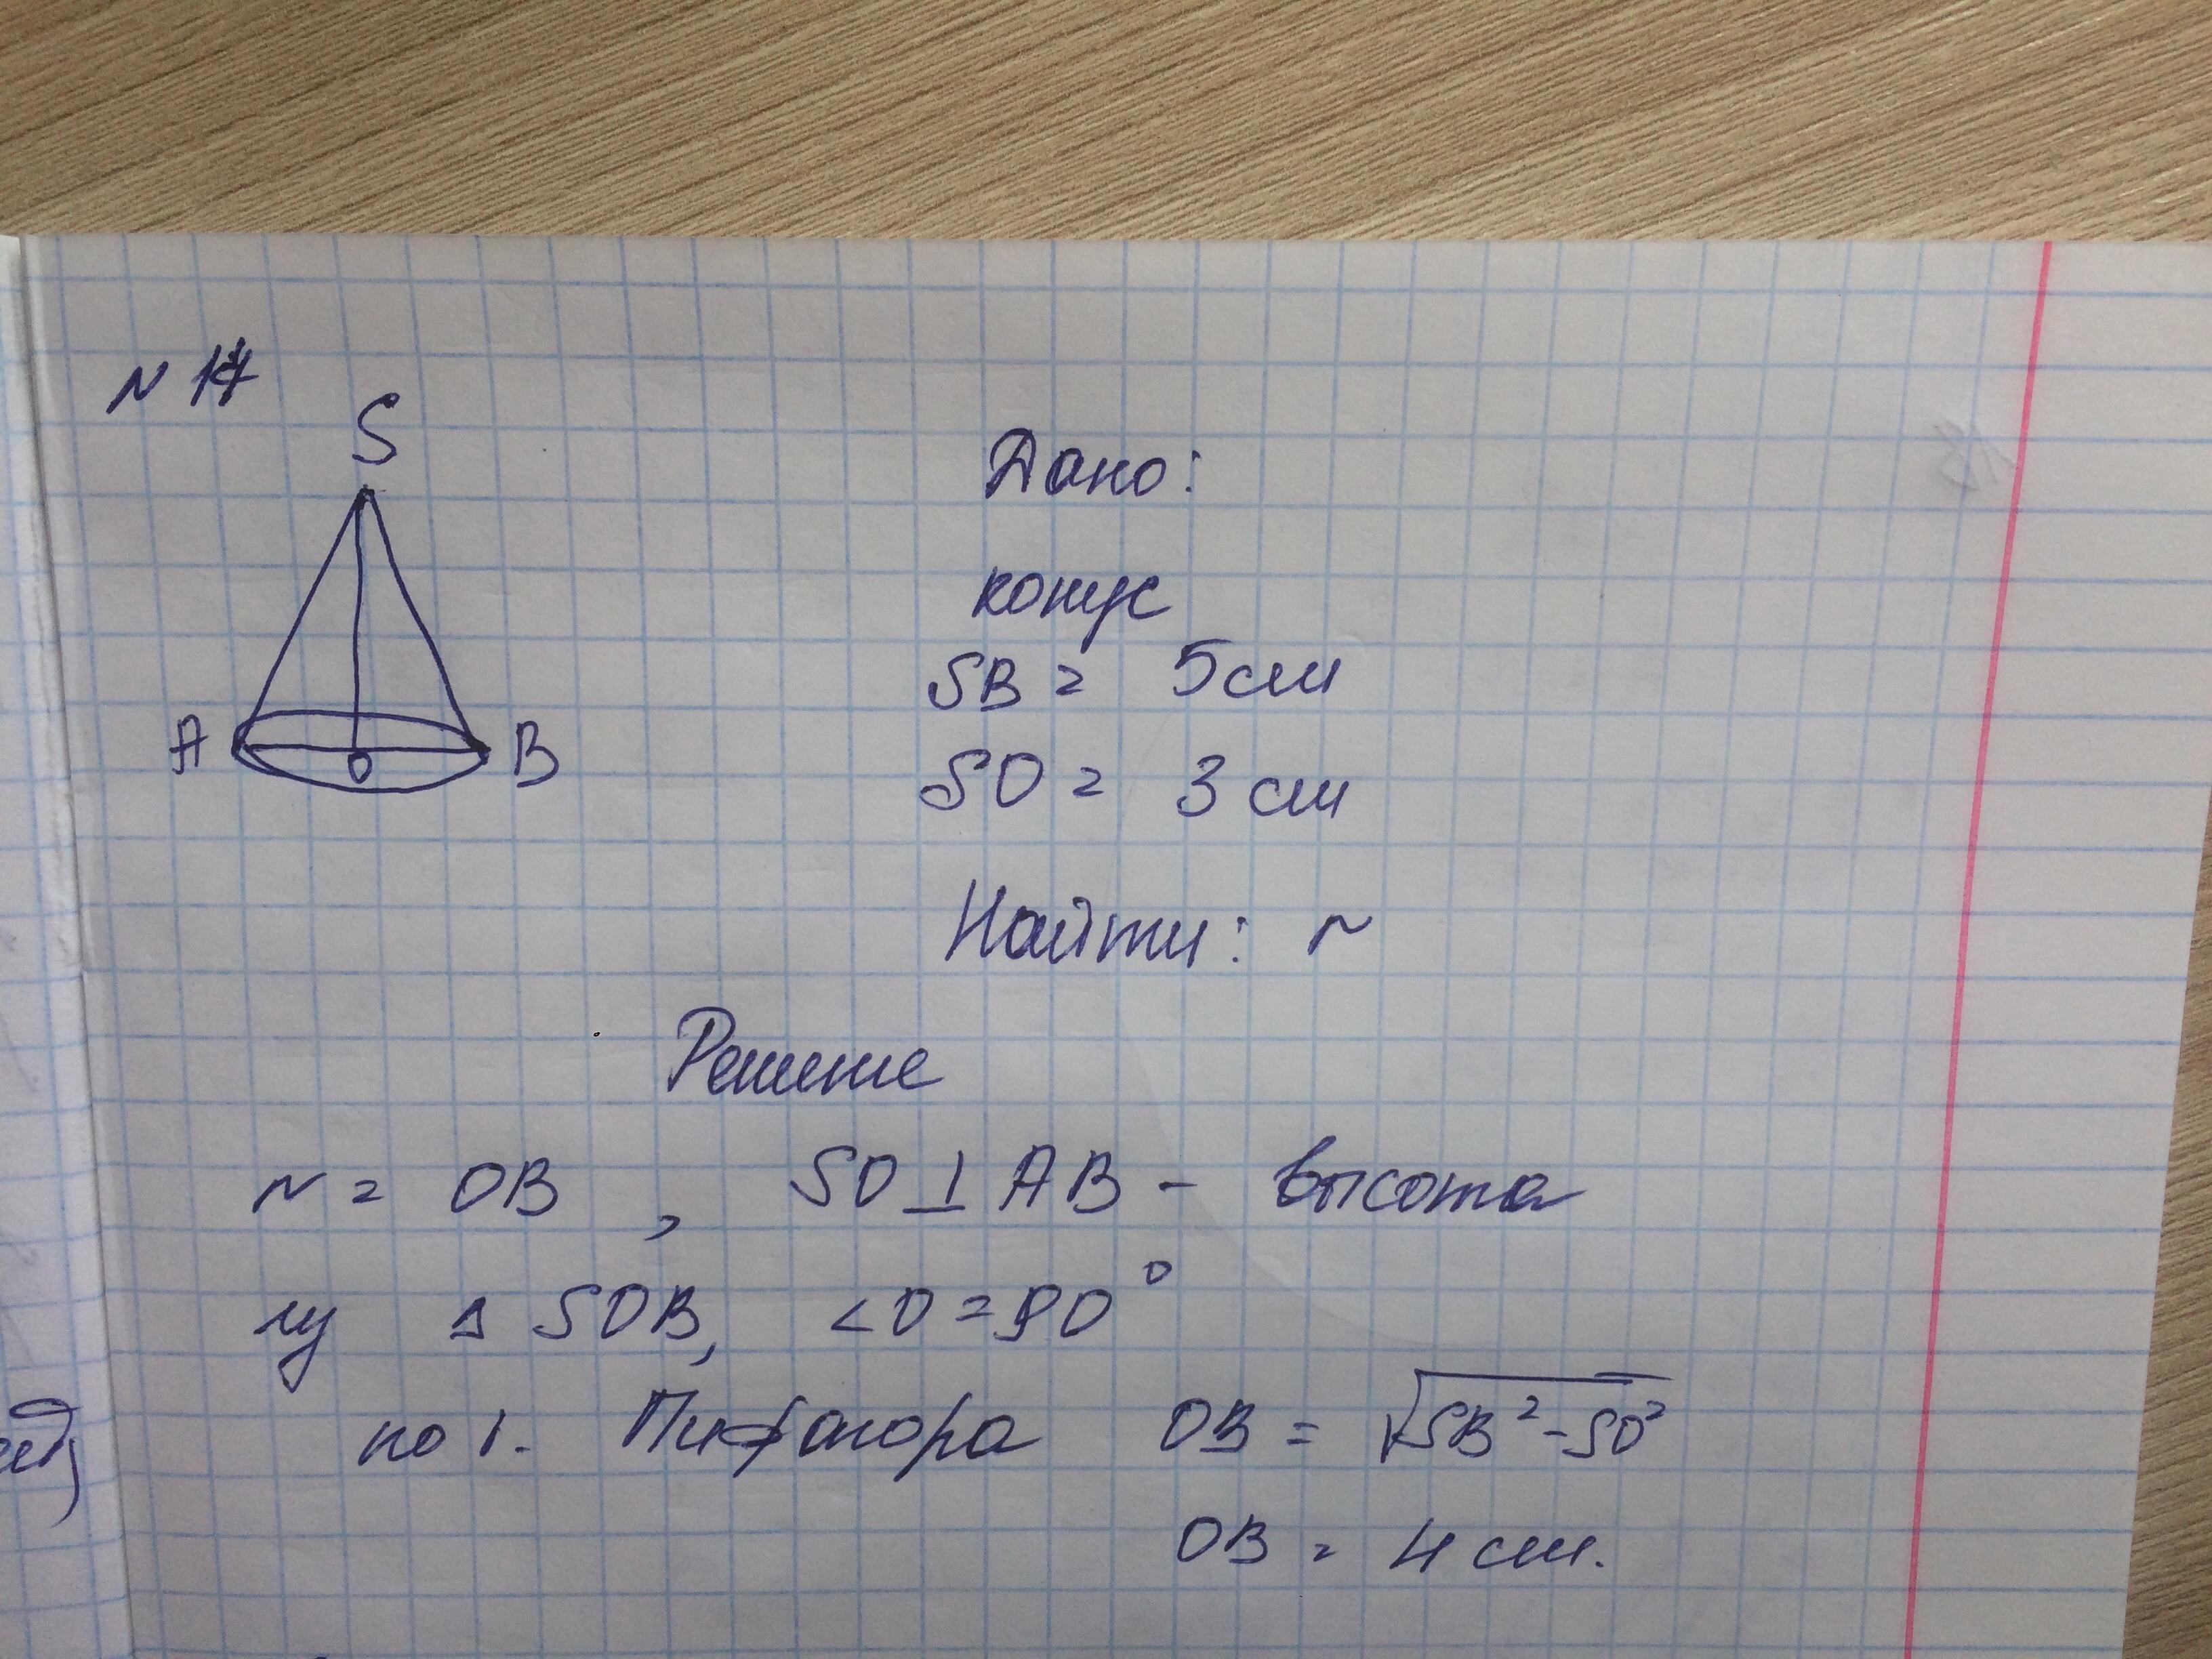 N 17
S
A
O
B
Дано:
конус
SB = 5 см
SO = 3 см
Найти: r
Решение
r = OB , SO ⊥ AB - высота
из Δ SOB, <O = 90°
по т. Пифагора OB = √SB² - SO²
OB = 4 см.